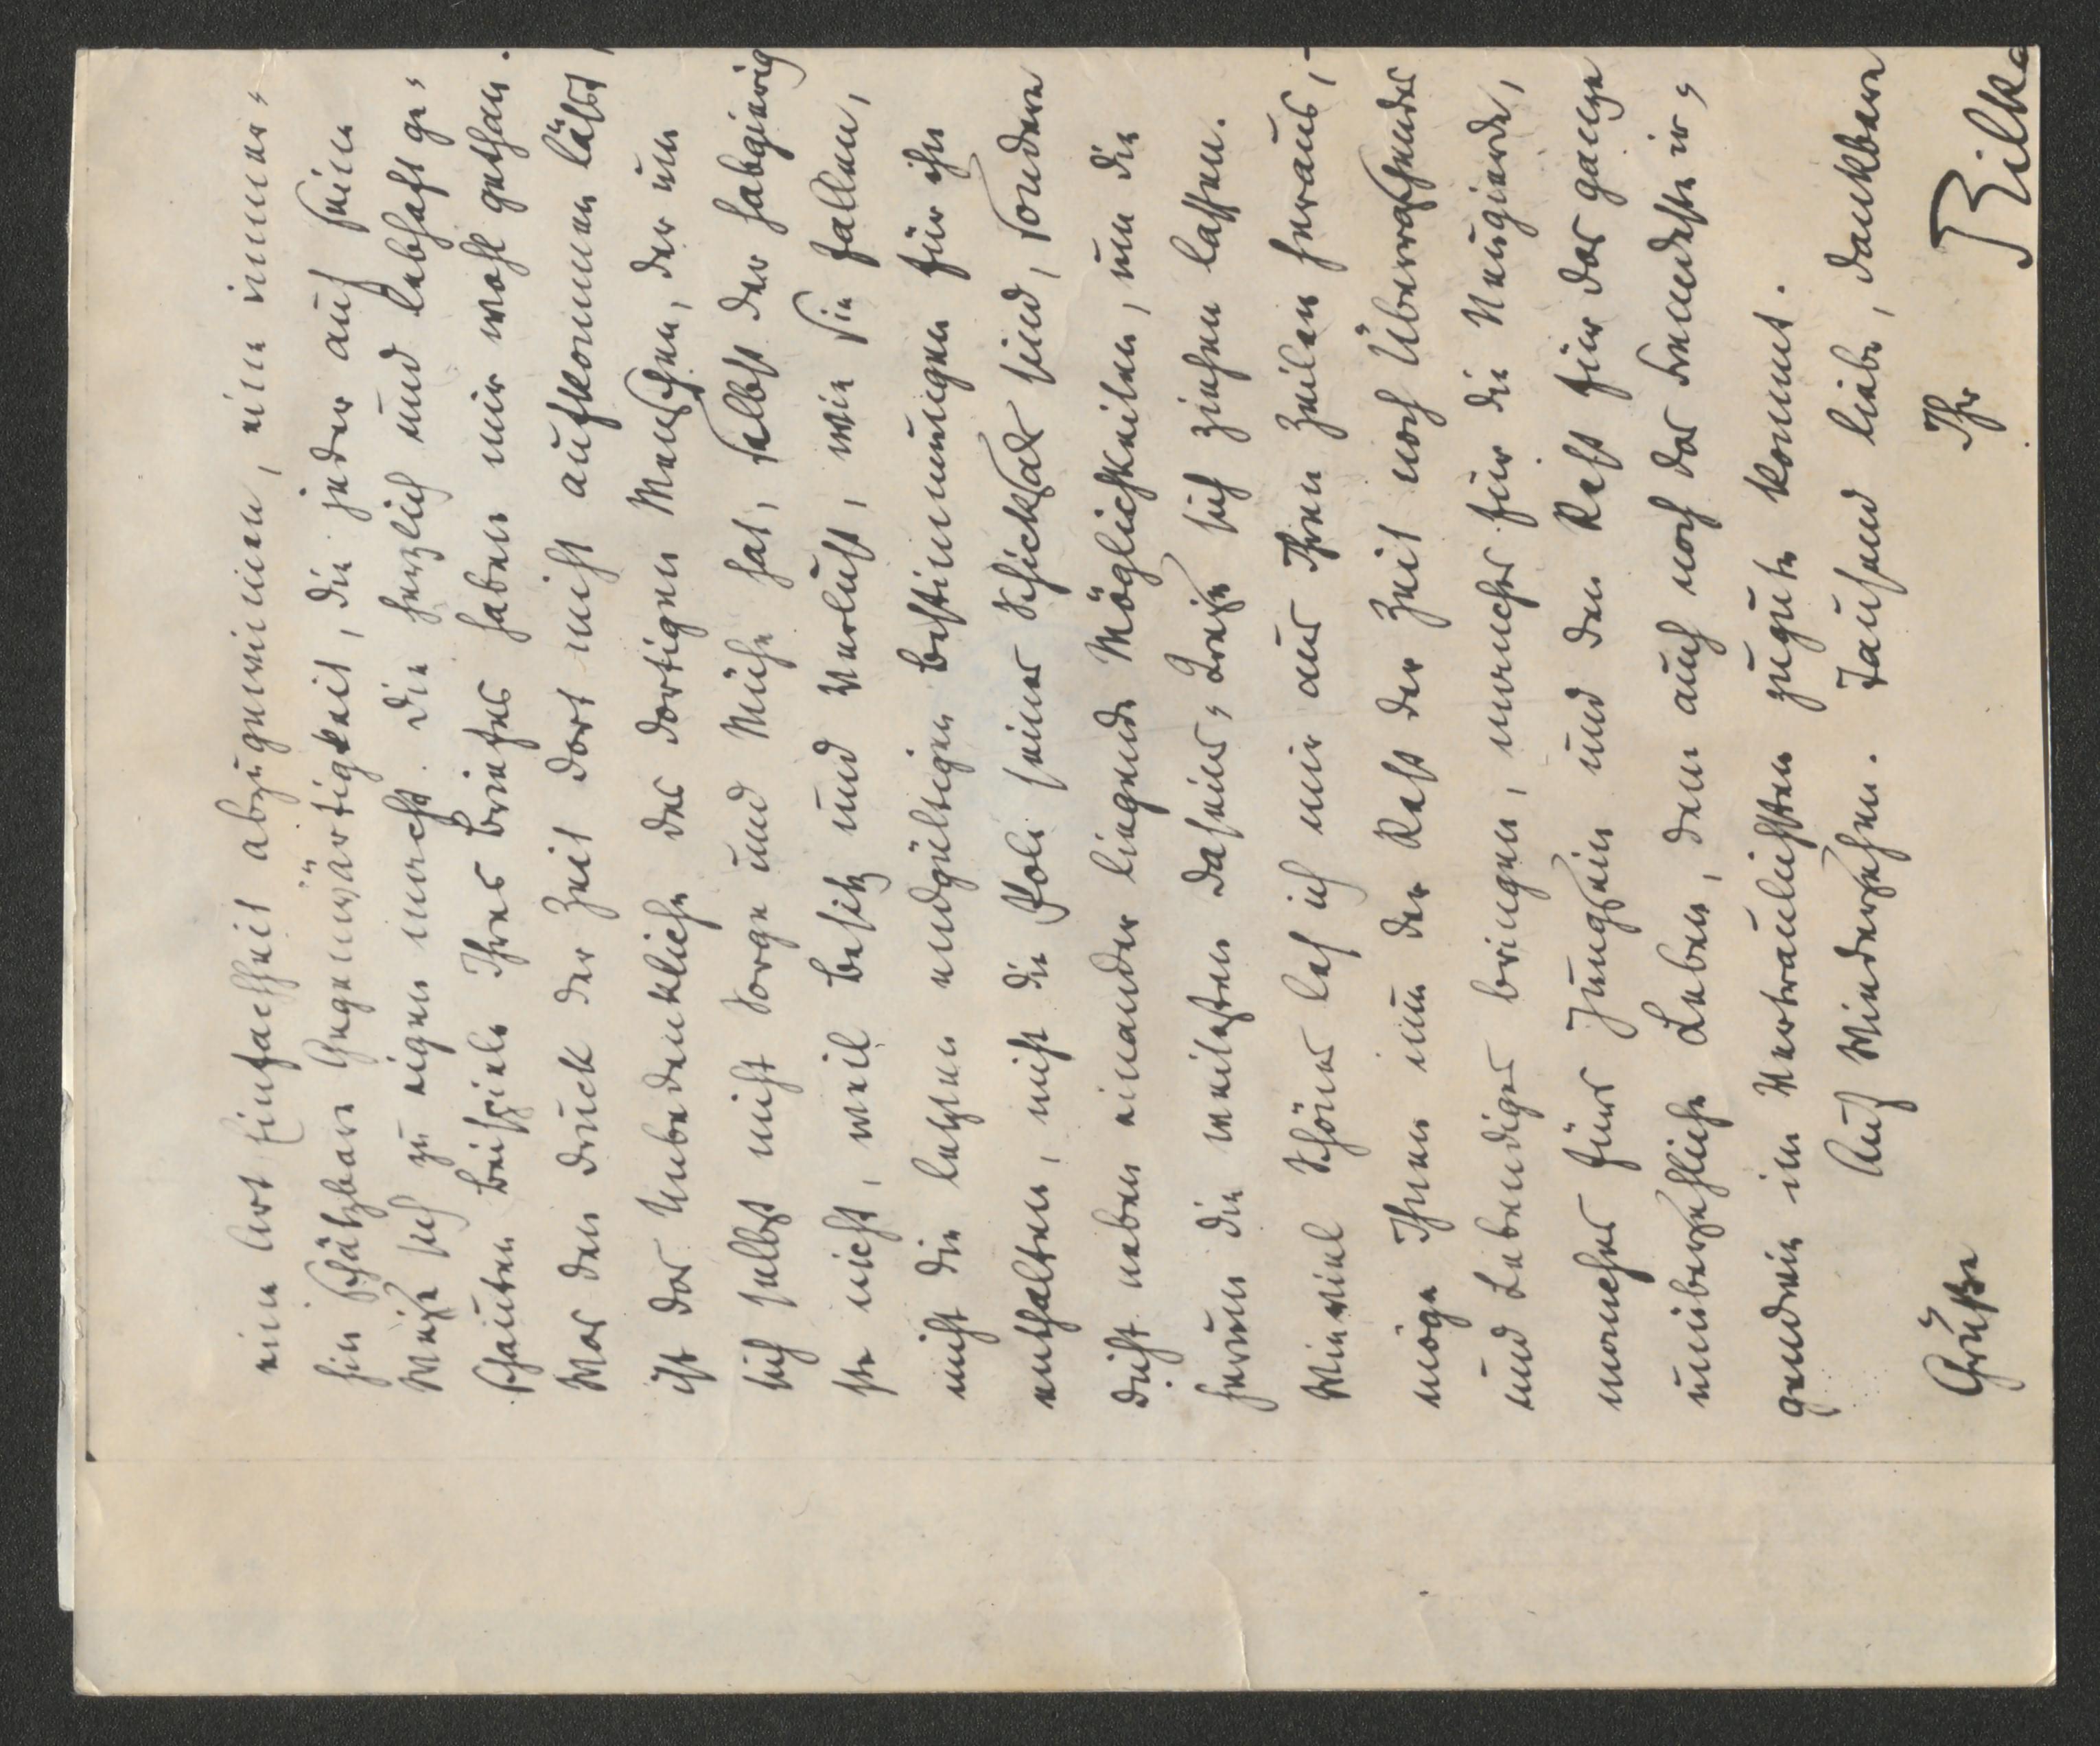 eine Art Einfachheit abzugewinnen, eine immer-
hin schätzbare Gegenwärtigkeit, die jeder auf seine
Weise sich zu eigen macht. Die herzlich und lebhaft ge-
schauten Beispiele Ihres Briefes haben mir wohl gethan.
Was den Druck der Zeit dort nicht aufkommen läßt,
ist das Unbedenkliche des dortigen Menschen, der um
sich selbst nicht Sorge und Mühe hat, selbst der habgierig-
ste nicht, weil Besitz und Verlust, wie sie fallen,
nicht die letzten endgültigen Bestimmungen für ihn
enthalten, nicht die Pole seines Schicksals sind, sondern
dicht neben einander liegende Möglichkeiten, um die
herum die weitesten Daseins-Kreise sich ziehen lassen.
Wieviel Schönes les ich mir aus Ihren Zeilen heraus,-
möge Ihnen nun der Rest der Zeit noch Überraschendes
und Lebendiges bringen, manches für die Neugierde,
manches fürs Jungsein und den Rest für das ganze
unübersehliche Leben, dem auch noch das Fremdeste ir-
gendwie im Vertraulichsten zugute kommt.
Auf Wiedersehen. Tausend liebe, dankbare
Grüße Ihr Rilke